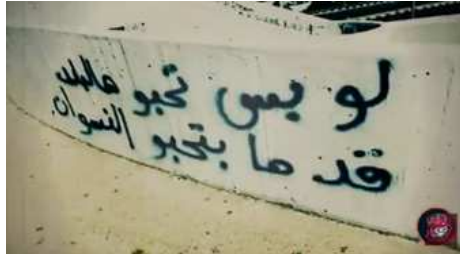 لو بس تحبو هالبلد
قد ما بتحبو النسوان